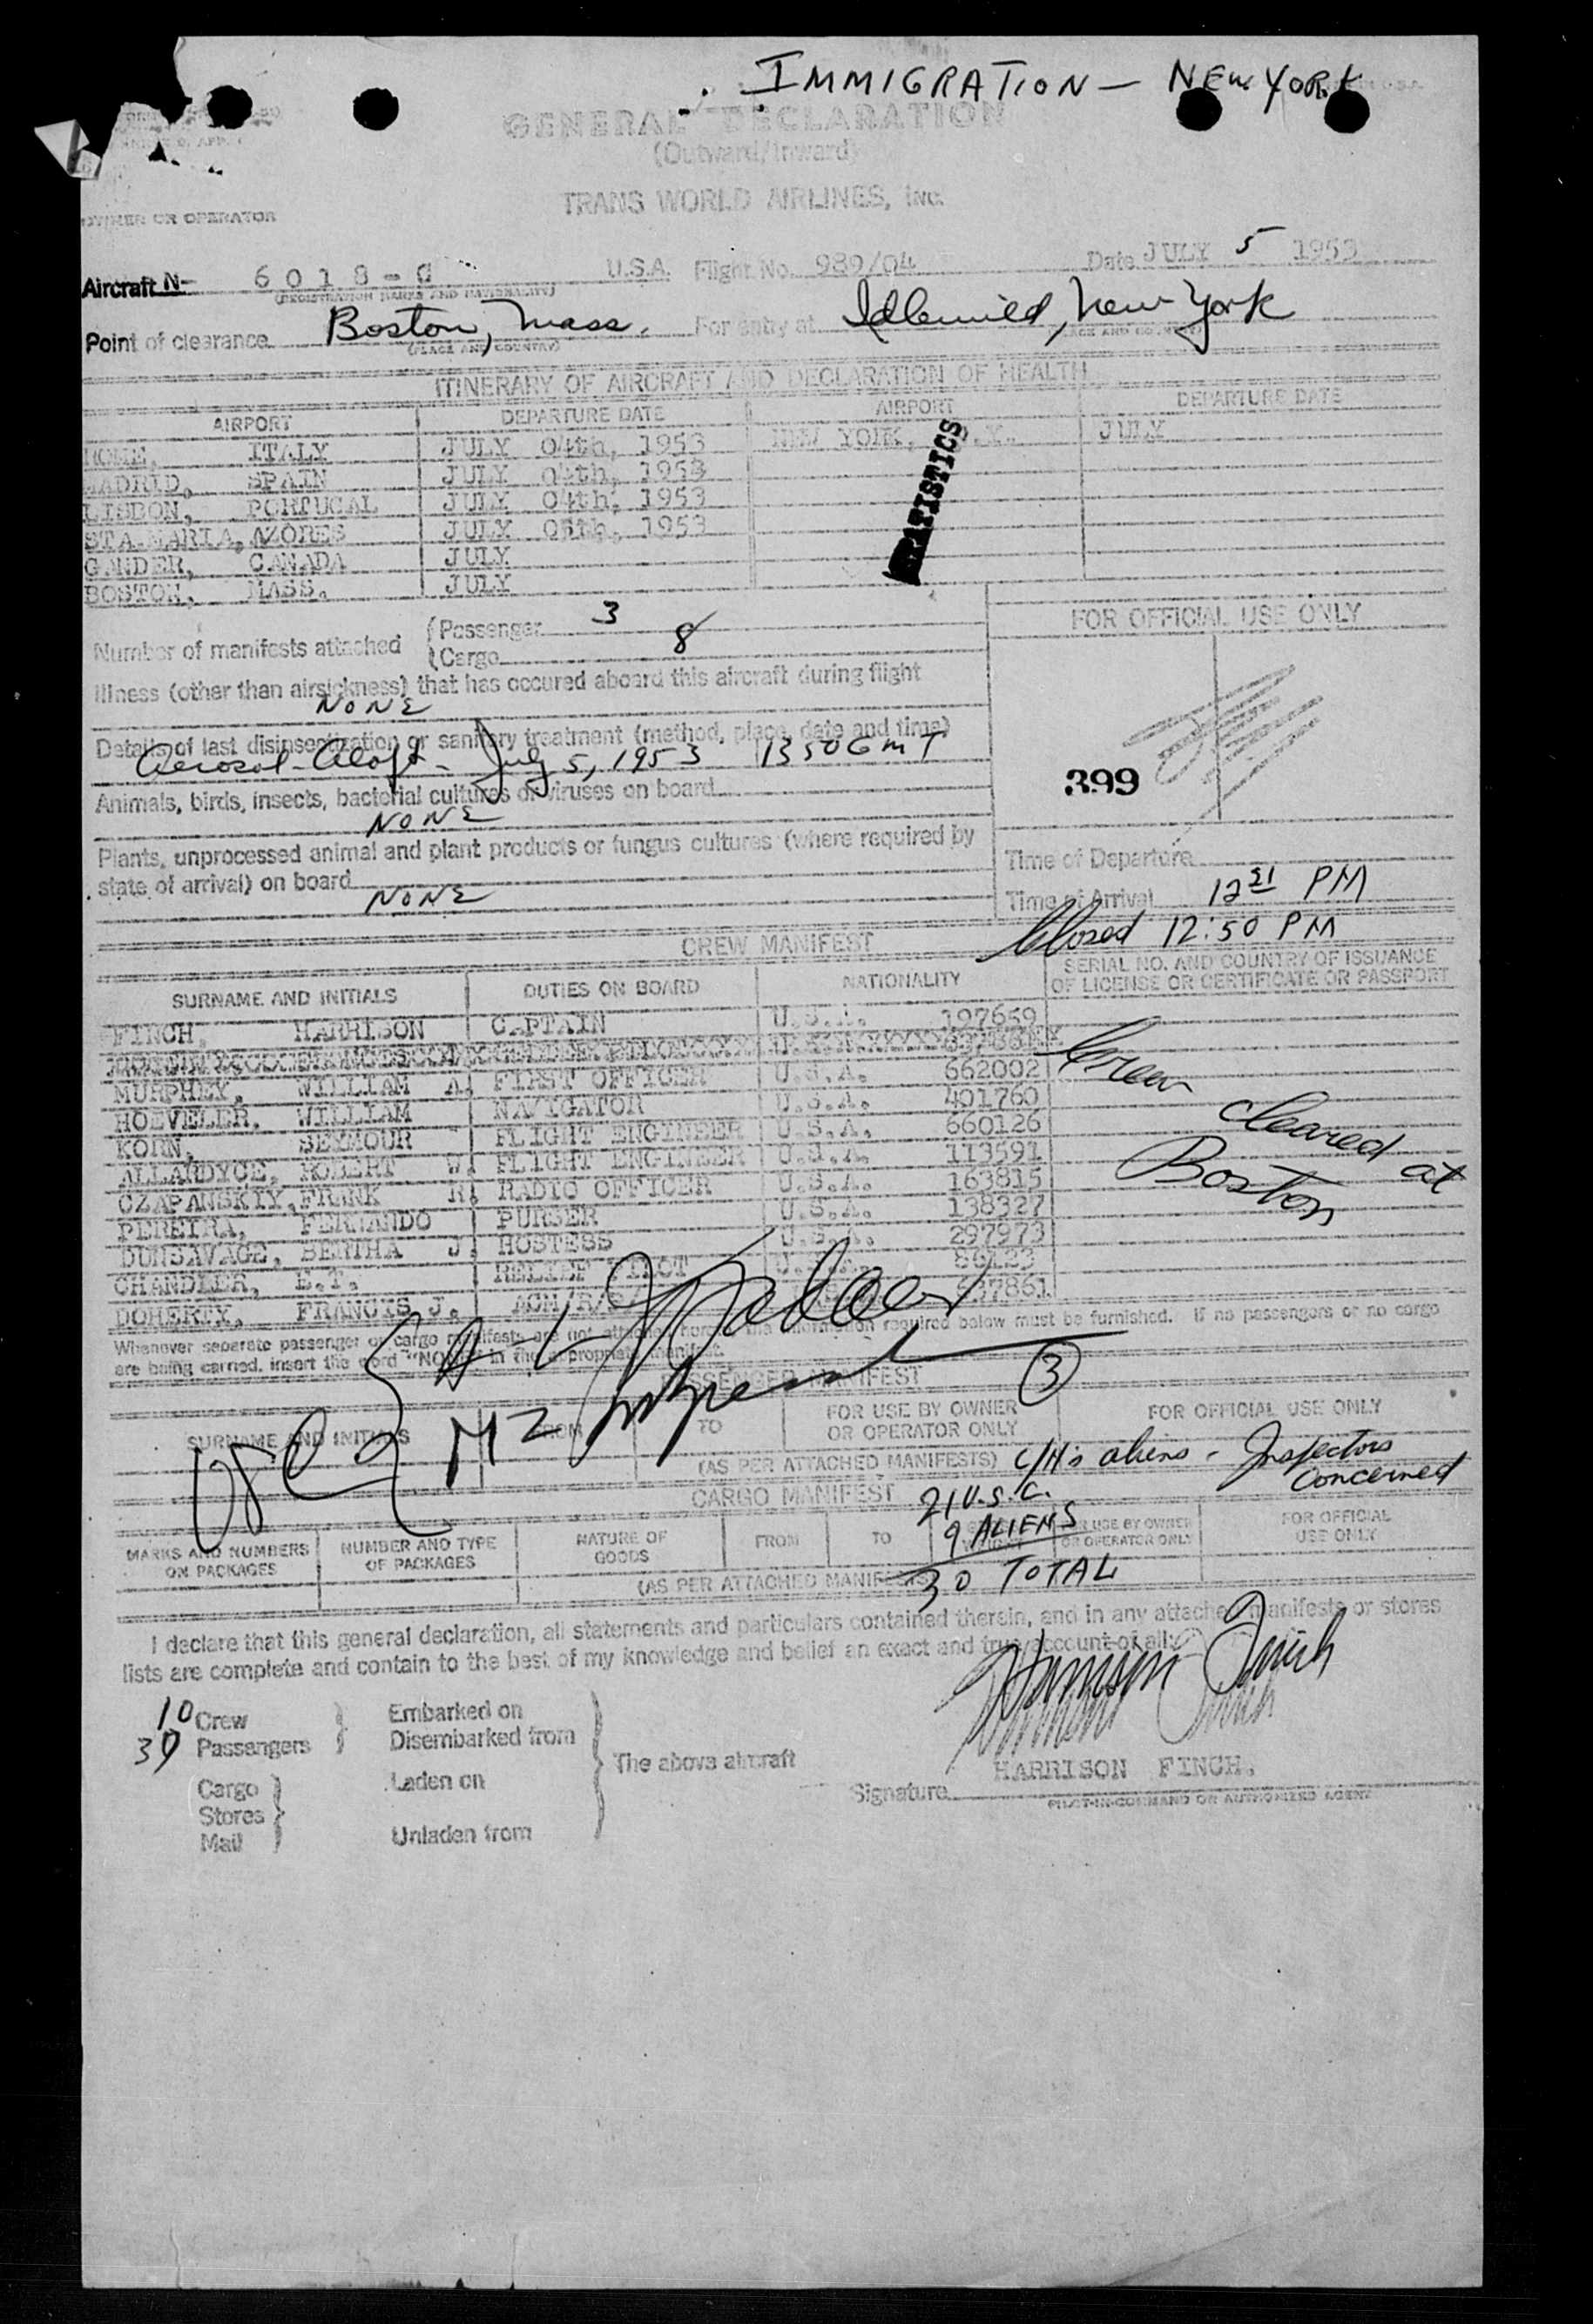 IMMIGRATION — NEW YORK
GENERAL DECLARATION
(Outward/Inward)
TRANS WORLD AIRLINES, Inc.
OWNER OR OPERATOR
Aircraft N- 6018-C U.S.A. Flight No. 989/04 Date JULY 5 1953
(REGISTRATION MARKS AND NATIONALITY)
Point of clearance Boston, Mass. For entry at Idlewild, New York
(PLACE AND COUNTRY)
ITINERARY OF AIRCRAFT AND DECLARATION OF HEALTH
AIRPORT DEPARTURE DATE AIRPORT DEPARTURE DATE
ROME, ITALY JULY 04th, 1953 NEW YORK, N.Y. JULY
MADRID, SPAIN JULY 04th, 1953
LISBON, PORTUGAL JULY 04th, 1953
STA.MARIA, AZORES JULY 05th, 1953
GANDER, CANADA JULY
BOSTON, MASS. JULY
STATISTICS
Number of manifests attached (Passenger 3
(Cargo 8
FOR OFFICIAL USE ONLY
Illness (other than airsickness) that has occured aboard this aircraft during flight
NONE
Details of last disinsectization or sanitary treatment (method, place, date and time)
Aerosol-Aloft- July 5, 1953 1350 GMT
399
Animals, birds, insects, bacterial cultures or viruses on board
NONE
Plants, unprocessed animal and plant products or fungus cultures (where required by
state of arrival) on board
NONE
Time of Departure
Time of Arrival 12 21 PM
Closed 12:50 PM
CREW MANIFEST
SURNAME AND INITIALS DUTIES ON BOARD NATIONALITY SERIAL NO. AND COUNTRY OF ISSUANCE
OF LICENSE OR CERTIFICATE OR PASSPORT
FINCH, HARRISON CAPTAIN U.S.A. 197659
MURPHEY, WILLIAM A. FIRST OFFICER U.S.A. 662002
HOEVELER, WILLIAM NAVIGATOR U.S.A. 401760
KORN, SEYMOUR FLIGHT ENGINEER U.S.A. 660126
ALLARDYCE, ROBERT W. FLIGHT ENGINEER U.S.A. 113591
CZAPANSKIY, FRANK R. RADIO OFFICER U.S.A. 163815
PEREIRA, FERNANDO PURSER U.S.A. 138327
DUNSAVAGE, BERTHA J. HOSTESS U.S.A. 297973
CHANDLER, E.T. RELIEF PILOT 86123
DOHERTY, FRANCIS J. ACM/R/S
Crew cleared at
Boston
Whenever separate passenger or cargo manifests are not attached hereto the information required below must be furnished. If no passengers or no cargo
are being carried, insert the word "NONE" in the appropriate manifest.
PASSENGER MANIFEST
3
SURNAME AND INITIALS FROM TO FOR USE BY OWNER
OR OPERATOR ONLY FOR OFFICIAL USE ONLY
(AS PER ATTACHED MANIFESTS) C/H's aliens - Inspectors
concerned
CARGO MANIFEST
21 U.S.C.
9 ALIENS
30 TOTAL
MARKS AND NUMBERS
ON PACKAGES NUMBER AND TYPE
OF PACKAGES NATURE OF
GOODS FROM TO WEIGHT FOR USE BY OWNER
OR OPERATOR ONLY FOR OFFICIAL
USE ONLY
(AS PER ATTACHED MANIFESTS)
I declare that this general declaration, all statements and particulars contained therein, and in any attached manifests or stores
lists are complete and contain to the best of my knowledge and belief an exact and true account of all:
Harrison Finch
10 Crew Embarked on
30 Passengers Disembarked from
The above aircraft
Cargo Laden on
Stores
Mail Unladen from
HARRISON FINCH.
Signature
PILOT-IN-COMMAND OR AUTHORIZED AGENT